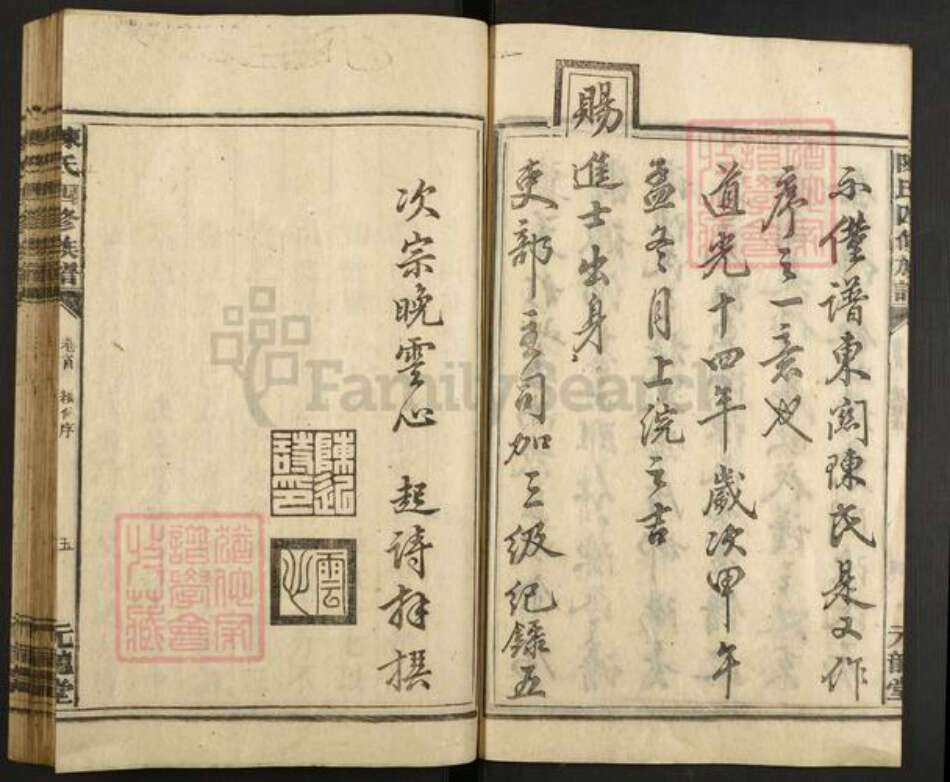 不僅譜東關陳氏是又作
序之一意也
道光十四年歲次甲午
孟冬月上浣之吉
賜
進士出身
吏部主司加三級紀錄五
次宗晚雲心 起詩拜撰
陳起詩印
雲心
陳氏四修族譜
卷首
序
五
元龍堂
陳氏四修族譜
元龍堂
FamilySearch